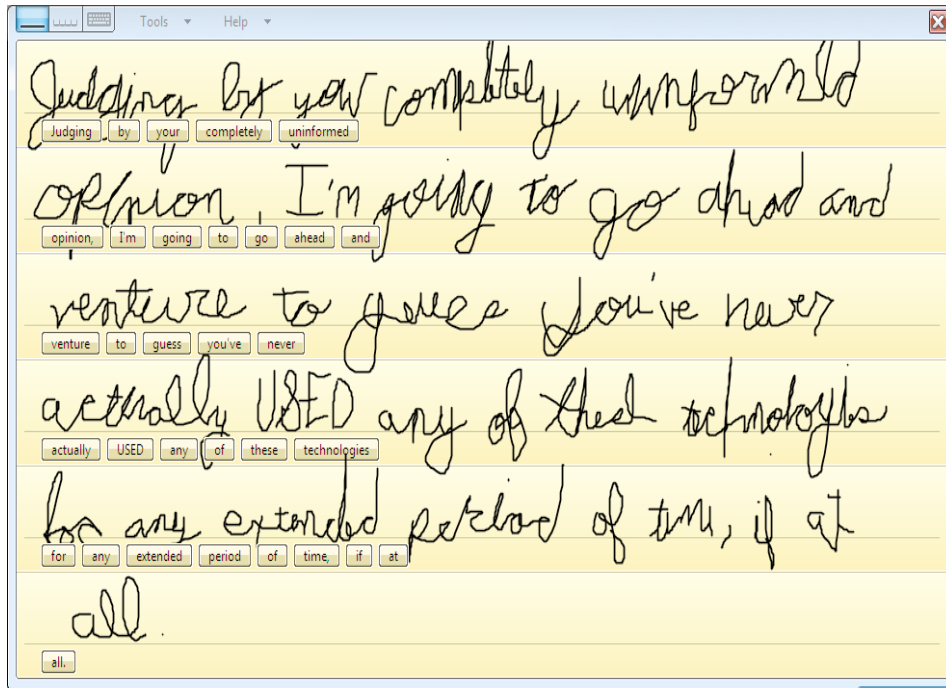 Tools Help
Judging by your completely uninformed
Judging by your completely uninformed
opinion, I'm going to go ahead and
opinion, I'm going to go ahead and
venture to guess you've never
venture to guess you've never
actually USED any of these technologies
actually USED any of these technologies
for any extended period of time, if at
for any extended period of time, if at
all.
all.